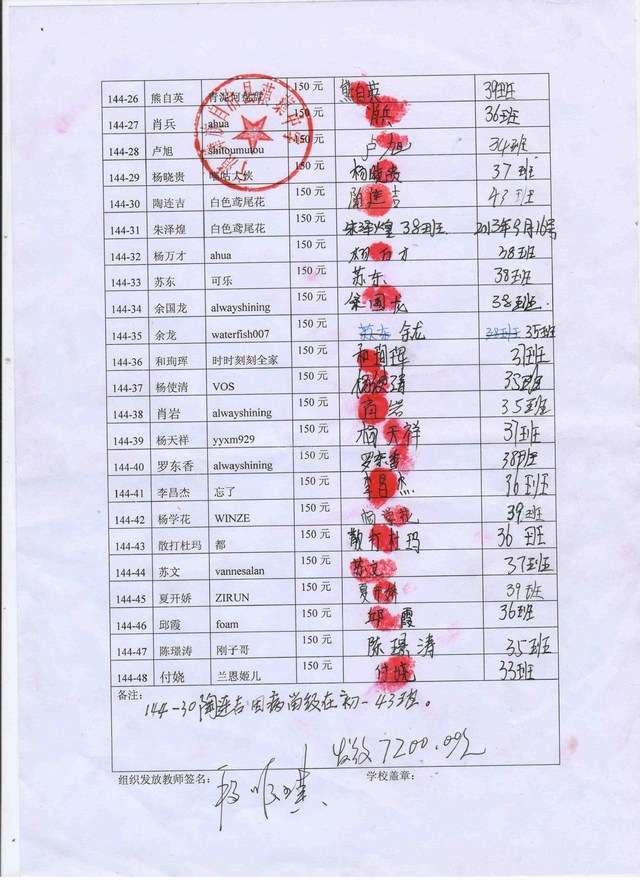 144-26 熊自英 150 元 熊自英 39班
144-27 肖兵 ahua 150 元 肖兵 36班
144-28 卢旭 shitoumutou 150 元 卢旭 34班
144-29 杨晓贵 嘀咕大侠 150 元 杨晓贵 37班
144-30 陶连吉 白色鸢尾花 150 元 陶连吉 43班
144-31 朱泽煌 白色鸢尾花 150 元 朱泽煌 38班. 2013年9月16号
144-32 杨万才 ahua 150 元 杨万才 38班
144-33 苏东 可乐 150 元 苏东 38班
144-34 余国龙 alwayshining 150 元 余国龙 38班.
144-35 余龙 waterfish007 150 元 苏东 余龙 38班 35班
144-36 和珣珲 时时刻刻全家 150 元 和珣珲 37班
144-37 杨使清 VOS 150 元 杨使清 35班
144-38 肖岩 alwayshining 150 元 肖岩 35班
144-39 杨天祥 yyxm929 150 元 杨天祥 37班
144-40 罗东香 alwayshining 150 元 罗东香 38班
144-41 李昌杰 忘了 150 元 李昌杰 36班
144-42 杨学花 WINZE 150 元 39班
144-43 散打杜玛 都 150 元 散打杜玛 36班
144-44 苏文 vannesalan 150 元 苏文 37班
144-45 夏开娇 ZIRUN 150 元 夏开娇 39班
144-46 邱霞 foam 150 元 邱霞 36班
144-47 陈璟涛 刚子哥 150 元 陈璟涛 35班
144-48 付娆 兰恩姬儿 150 元 付娆 33班
备注:
144-30陶连吉因病留级在初一43班。
发放7200.00元
组织发放教师签名: 学校盖章: